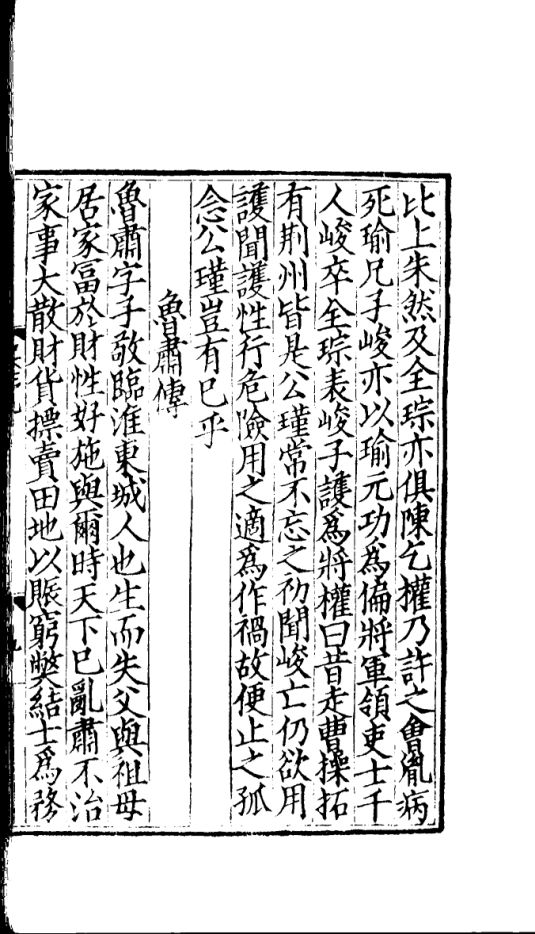 比上朱然及全琮亦俱陳乞權乃許之會胤病
死瑜兄子峻亦以瑜元功為偏將軍領吏士千
人峻卒全琮表峻子護為將權曰昔走曹操拓
有荆州皆是公瑾常不忘之初聞峻亡仍欲用
護聞護性行危險用之適為作禍故便止之孤
念公瑾豈有已乎
魯肅傳
魯肅字子敬臨淮東城人也生而失父與祖母
居家富於財性好施與爾時天下已亂肅不治
家事大散財貨摽賣田地以賑窮弊結士為務